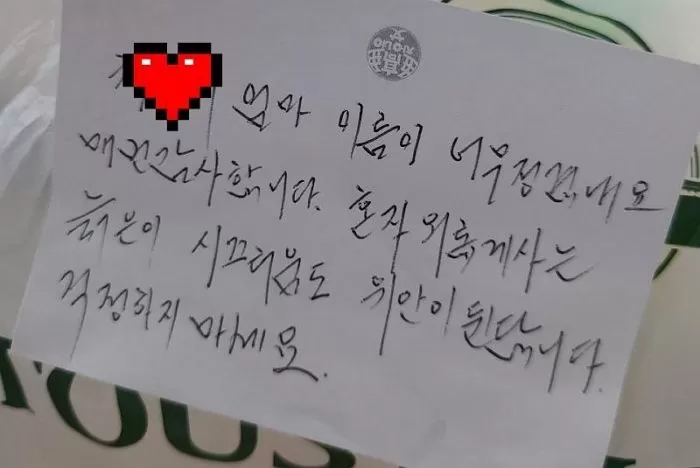 엄마 이름이 너무정겹내요
매번감사합니다. 혼자 외롭게사는
늙은이 시끄러움도 위안이 된답니다.
걱정하지 마세요.
YOUS